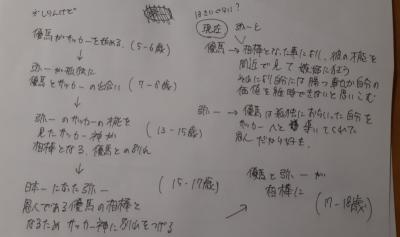 優馬がサッカーを始める、(5-6歳)
↓
弥一が孤独に
優馬とサッカーの出会い (7-8歳)
↓
弥一のサッカーの才能を
見たサッカー神が (13-15歳)
相棒となる、優馬との別れ
↓
日本一になった弥一 (15-17歳)
恩人である優馬の相棒と
なるため サッカー神に別れをつげる
現在 弥一と
優馬→相棒となった事により、彼の才能を
間近で見て 嫉妬に狂う
それにより自分には勝つ事でしか自分の
価値を証明できないと思いこむ
弥一→優馬は孤独におちいった自分を
サッカーへと導いてくれた
恩人だから好き
優馬と弥一が
相棒に (17-18歳)